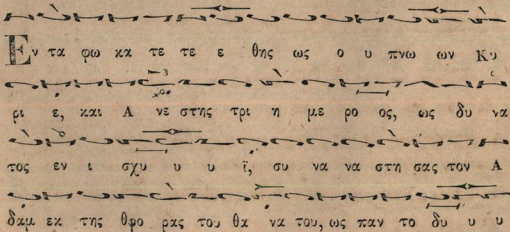 Εν τα φω κα τε τε ε θης ως ο υ πνω ων Κυ
ρι ε, και Α νε στης τρι η με ρο ος, ως δυ να
τος εν ι σχυ υ υ ϊ, συ να να στη σας τον Α
δαμ εκ της φθο ρας του θα να του, ως παν το δυ υ υ